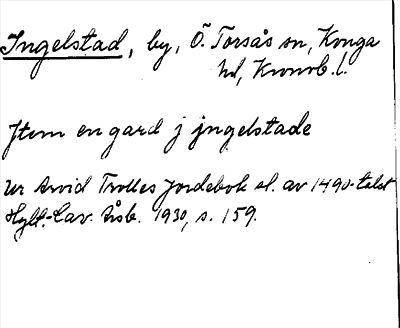 Ingelstad, by, Ö. Torsås sn, Konga
hd, Kronob. l.
Jtem en gard j jngelstade
Ur Arvid Trolles Jordebok sl. av 1490-talet
Hylt.-Cav. Årsb. 1930, s. 159.